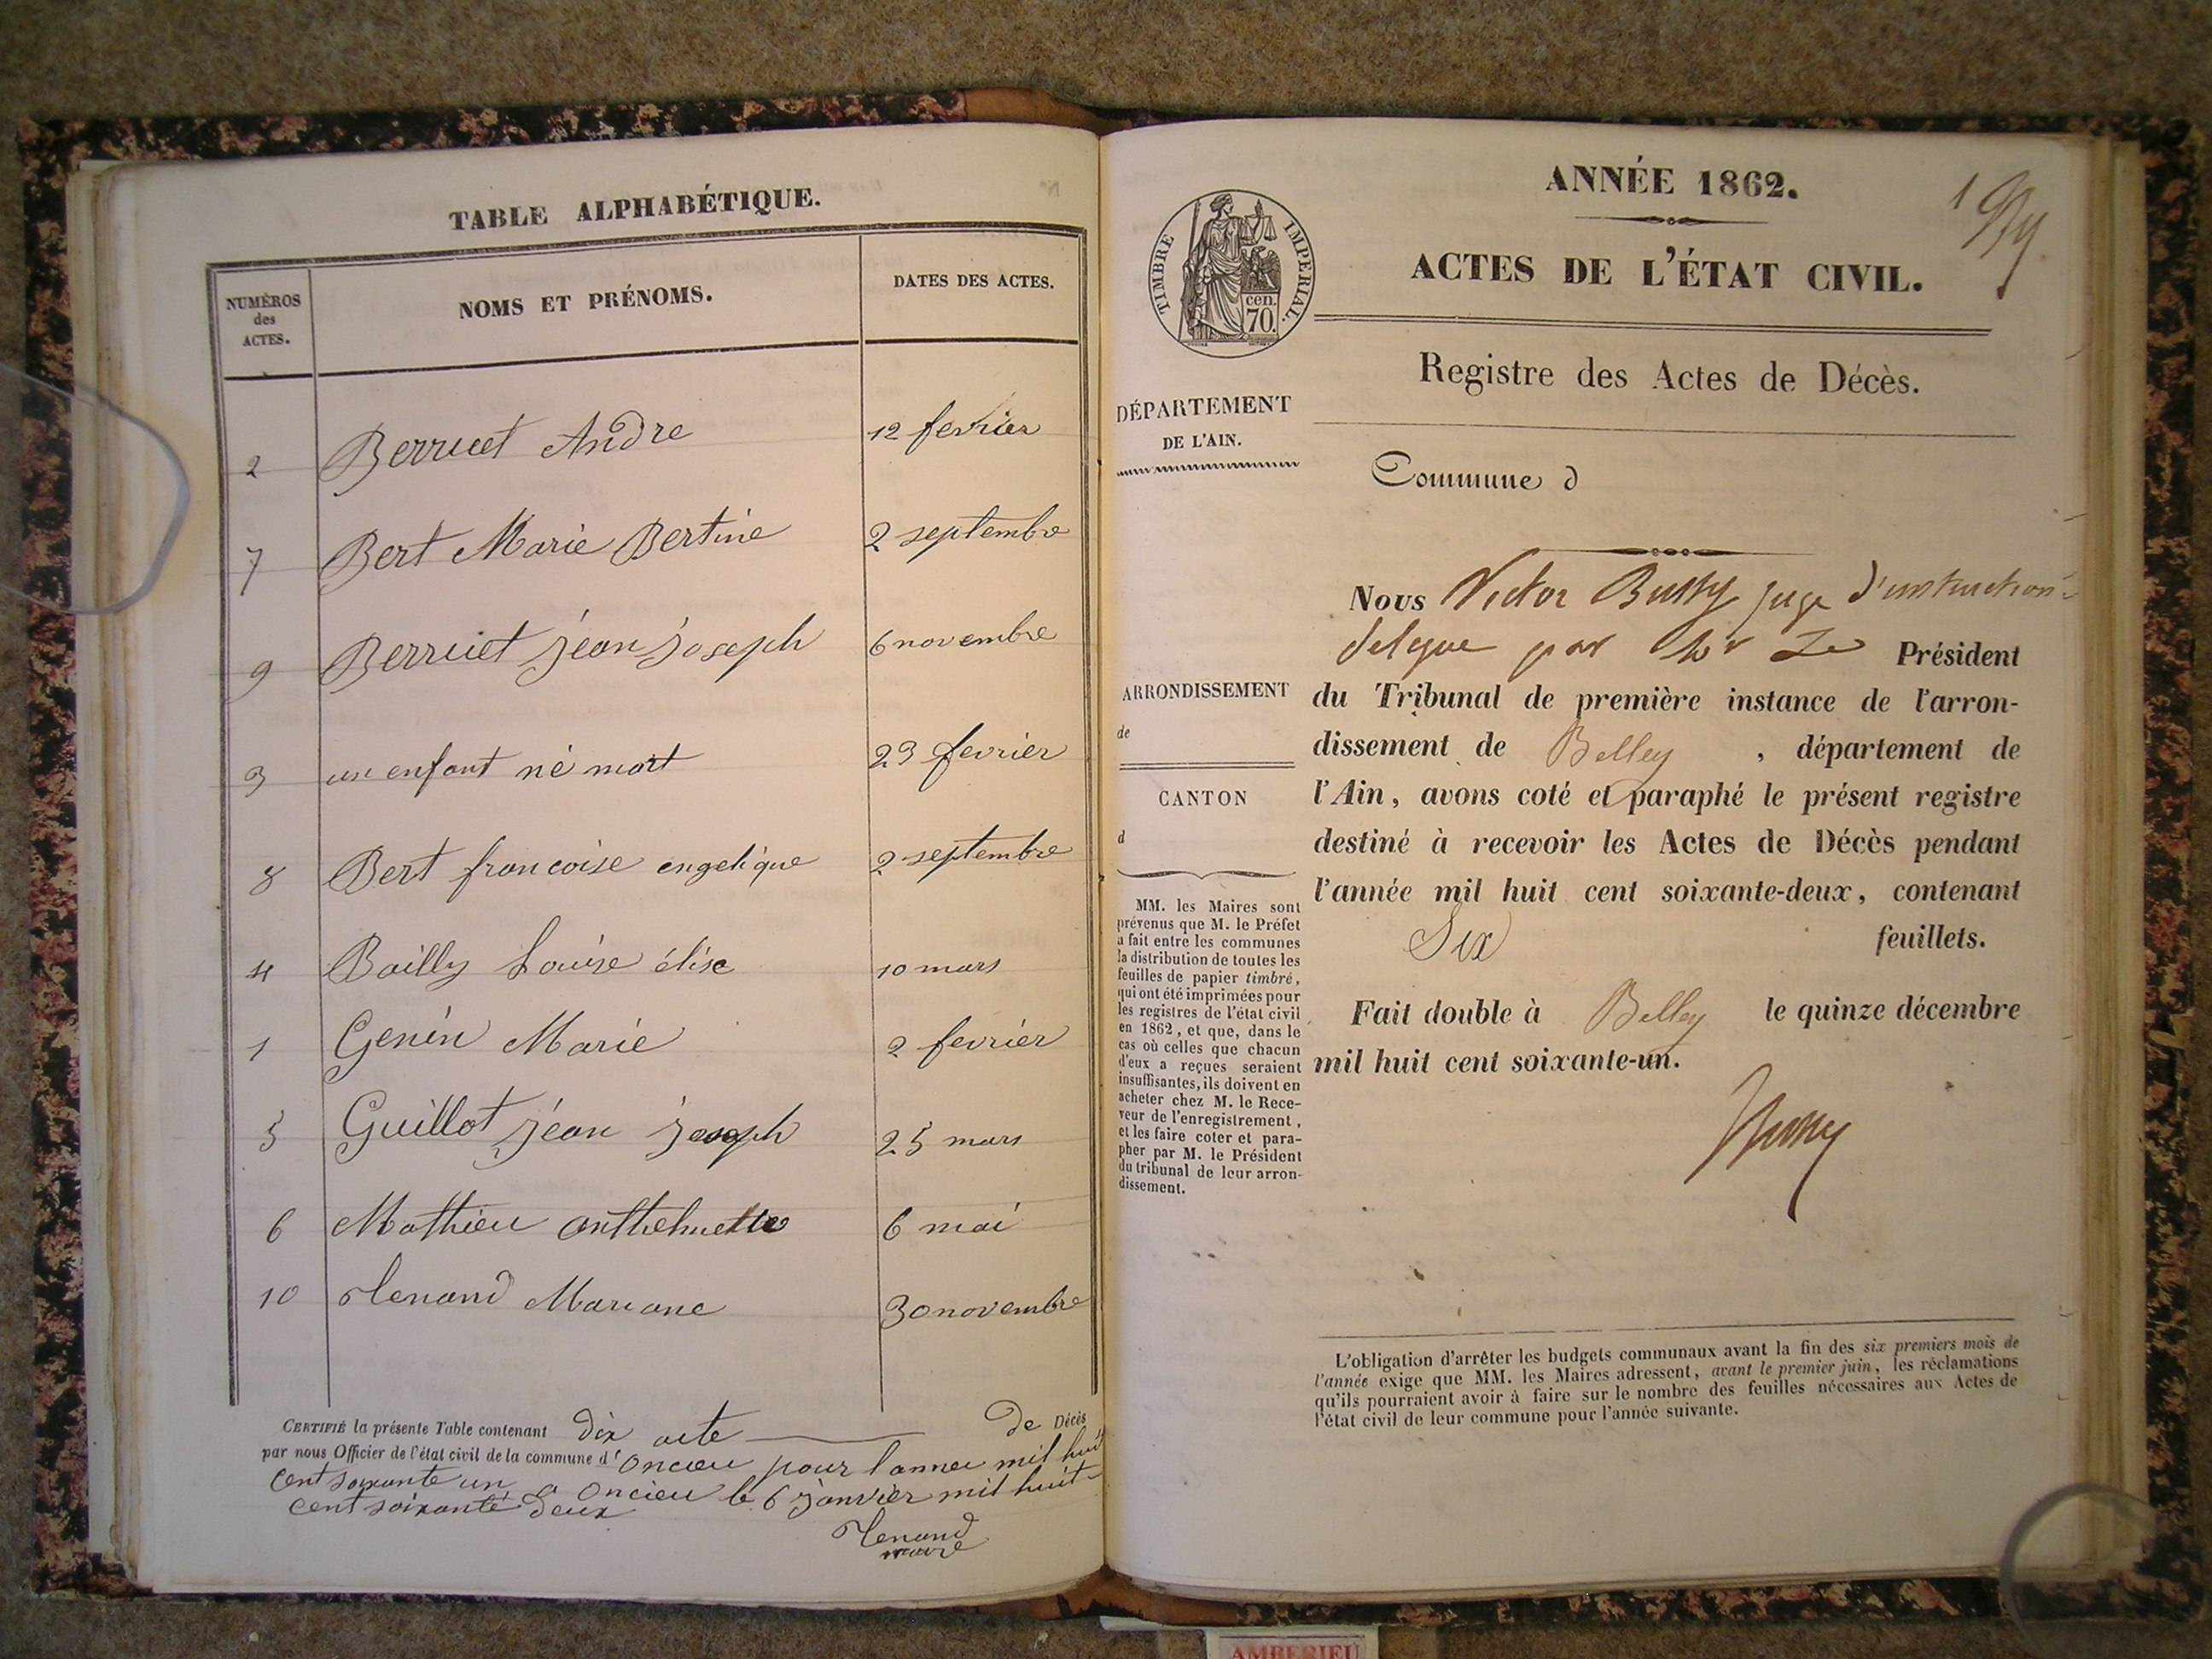 TABLE ALPHABÉTIQUE.
NUMÉROS des ACTES.
NOMS ET PRÉNOMS.
DATES DES ACTES.
2 Berruet Andre 12 fevrier
7 Bert Marie Bertine 2 septembre
9 Berruet jean joseph 6 novembre
3 un enfant né mort 23 fevrier
8 Bert francoise engelique 2 septembre
4 Bailly Louise élise 10 mars
1 Genin Marie 2 fevrier
5 Guillot jean joseph 25 mars
6 Mathieu anthelmette 6 mai
10 Renand Mariane 30 novembre
CERTIFIÉ la présente Table contenant dix acte de Décès
par nous Officier de l'état civil de la commune d'Oncieu pour lannee mil huit
cent soixante un a Oncieu le 6 janvier mil huit
cent soixante deux
Renand
maire
ANNÉE 1862.
1
ACTES DE L'ÉTAT CIVIL.
TIMBRE IMPÉRIAL.
cen.
70.
Registre des Actes de Décès.
DÉPARTEMENT
DE L'AIN.
Commune d
ARRONDISSEMENT
de
CANTON
d
MM. les Maires sont
prévenus que M. le Préfet
a fait entre les communes
la distribution de toutes les
feuilles de papier timbré,
qui ont été imprimées pour
les registres de l'état civil
en 1862, et que, dans le
cas où celles que chacun
d'eux a reçues seraient
insuffisantes, ils doivent en
acheter chez M. le Rece-
veur de l'enregistrement,
et les faire coter et para-
pher par M. le Président
du tribunal de leur arron-
dissement.
Nous Victor Bussy juge d'instruction
delegue par Mr Le Président
du Tribunal de première instance de l'arron-
dissement de Belley, département de
l'Ain, avons coté et paraphé le présent registre
destiné à recevoir les Actes de Décès pendant
l'année mil huit cent soixante-deux, contenant
Six feuillets.
Fait double à Belley le quinze décembre
mil huit cent soixante-un.
Bussy
L'obligation d'arrêter les budgets communaux avant la fin des six premiers mois de
l'année exige que MM. les Maires adressent, avant le premier juin, les réclamations
qu'ils pourraient avoir à faire sur le nombre des feuilles nécessaires aux Actes de
l'état civil de leur commune pour l'année suivante.
AMBERIEU